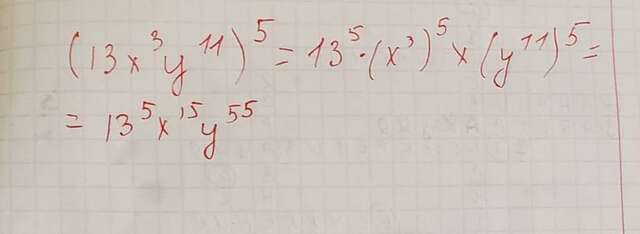 (13x³y¹¹)⁵ = 13⁵·(x³)⁵×(y¹¹)⁵ =
= 13⁵x¹⁵y⁵⁵